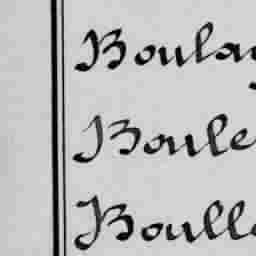 Boulay
Boule
Boulle